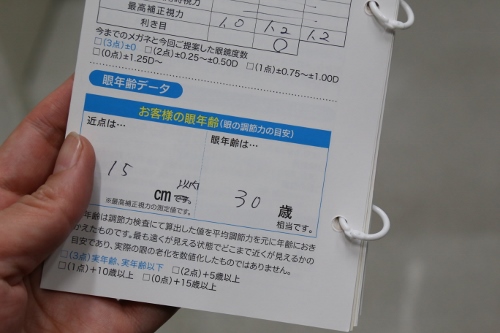 最高補正視力 1.0 1.2 1.2
利き目 ○
今までのメガネと今回ご提案した眼鏡度数
□(3点)±0 □(2点)±0.25～±0.50D □(1点)±0.75～±1.00D
□(0点)±1.25D～
眼年齢データ
お客様の眼年齢(眼の調節力の目安)
近点は… 眼年齢は…
15 以内 cmです。 30 歳
※最高補正視力の測定値です。 相当です。
年齢は調節力検査にて算出した値を平均調節力を元に年齢におき
かえたものです。最も遠くが見える状態でどこまで近くが見えるかの
目安であり、実際の眼の老化を数値化したものではありません。
□(3点)実年齢、実年齢以下 □(2点)+5歳以上
□(1点)+10歳以上 □(0点)+15歳以上